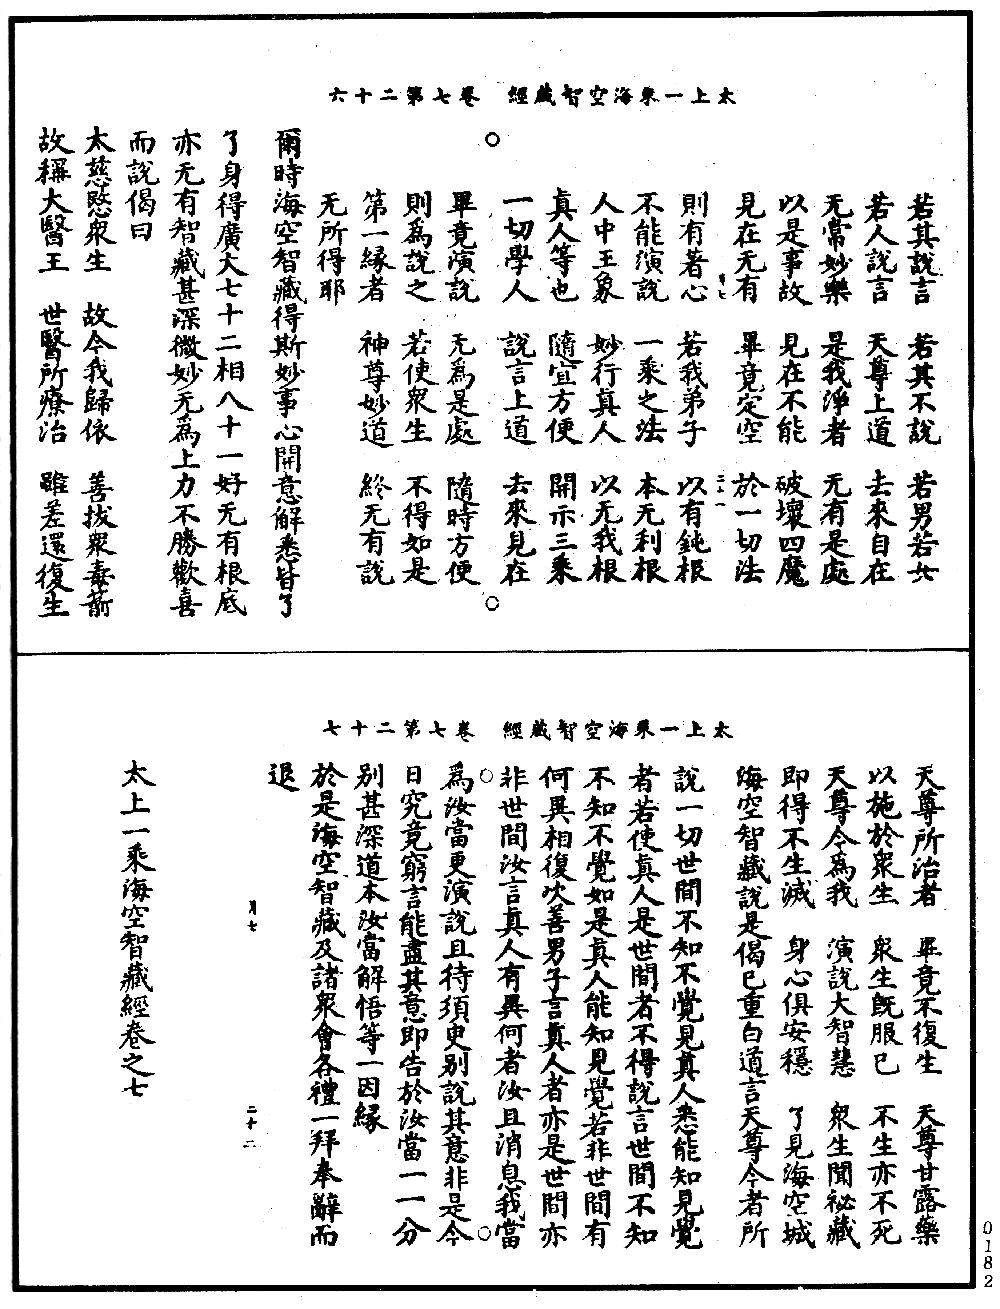 太上一乘海空智藏經　卷七第二十六
若其說言　若其不說　若男若女
若人說言　天尊上道　去來自在
无常妙樂　是我淨者　无有是處
以是事故　見在不能　破壞四魔
見在无有　畢竟定空　於一切法
則有著心　若我弟子　以有鈍根
不能演說　一乘之法　本无利根
人中王象　妙行真人　以无我根
真人等也　隨宜方便　開示三乘
一切學人　說言上道　去來見在
畢竟演說　无為是處　隨時方便
則為說之　若使眾生　不得如是
第一緣者　神尊妙道　終无有說
无所得耶
爾時海空智藏得斯妙事心開意解悉皆了
了身得廣大七十二相八十一好无有根底
亦无有智藏甚深微妙无為上力不勝歡喜
而說偈曰
太慈愍眾生　故今我歸依　善拔眾毒箭
故稱大醫王　世醫所療治　雖差還復生
太上一乘海空智藏經　卷七第二十七
天尊所治者　畢竟不復生　天尊甘露藥
以施於眾生　眾生既服已　不生亦不死
天尊今為我　演說大智慧　眾生聞祕藏
即得不生滅　身心俱安穩　了見海空城
海空智藏說是偈已重白道言天尊今者所
說一切世間不知不覺見真人悉能知見覺
者若使真人是世間者不得說言世間不知
不知不覺如是真人能知見覺若非世間有
何異相復次善男子言真人者亦是世間亦
非世間汝言真人有異何者汝且消息我當
為汝當更演說且待須臾別說其意非是今
日究竟窮言能盡其意即告於汝當一一分
別甚深道本汝當解悟等一因緣
於是海空智藏及諸眾會各禮一拜奉辭而
退
月七
二十二
太上一乘海空智藏經卷之七
0182